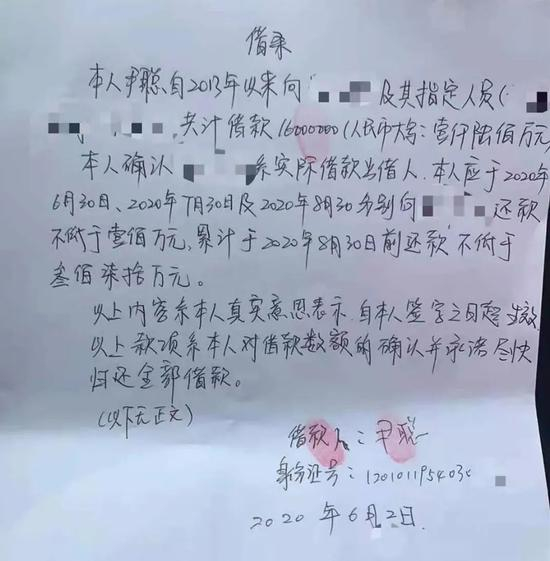 借条
本人尹聪自2013年以来向 及其指定人员(
共计借款16000000(人民币大写:壹仟陆佰万元
本人确认 系实际借款出借人.本人应于2020年
6月30日、2020年7月30日及2020年8月30分别向 还款
不低于壹佰万元,累计于2020年8月30日前还款不低于
叁佰柒拾万元。
以上内容系本人真实意思表示,自本人签字之日起生效
以上款项系本人对借款数额的确认并承诺尽快
归还全部借款。
(以下无正文)
借款人:尹聪
身份证号:120101195403
2020年6月2日.